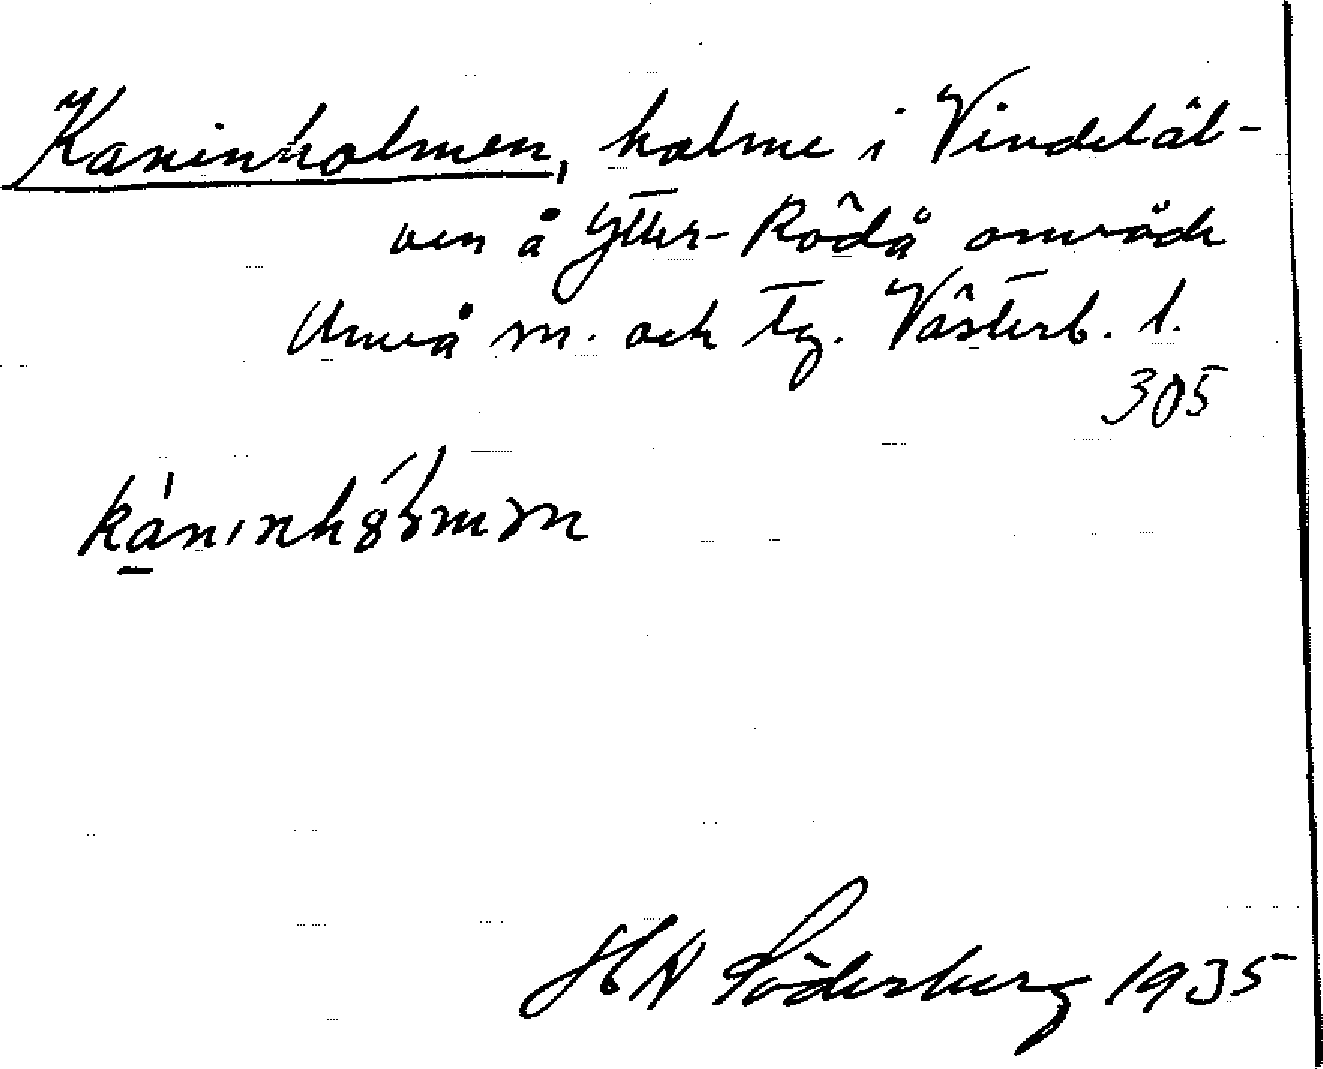 Kaninholmen, holme i Vindeläl-
ven å Ytter-Rödå område
Umeå sn. och tg. Västerb. l.
305
H N Söderberg 1935